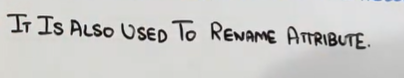 IT IS ALSO USED TO RENAME ATTRIBUTE.